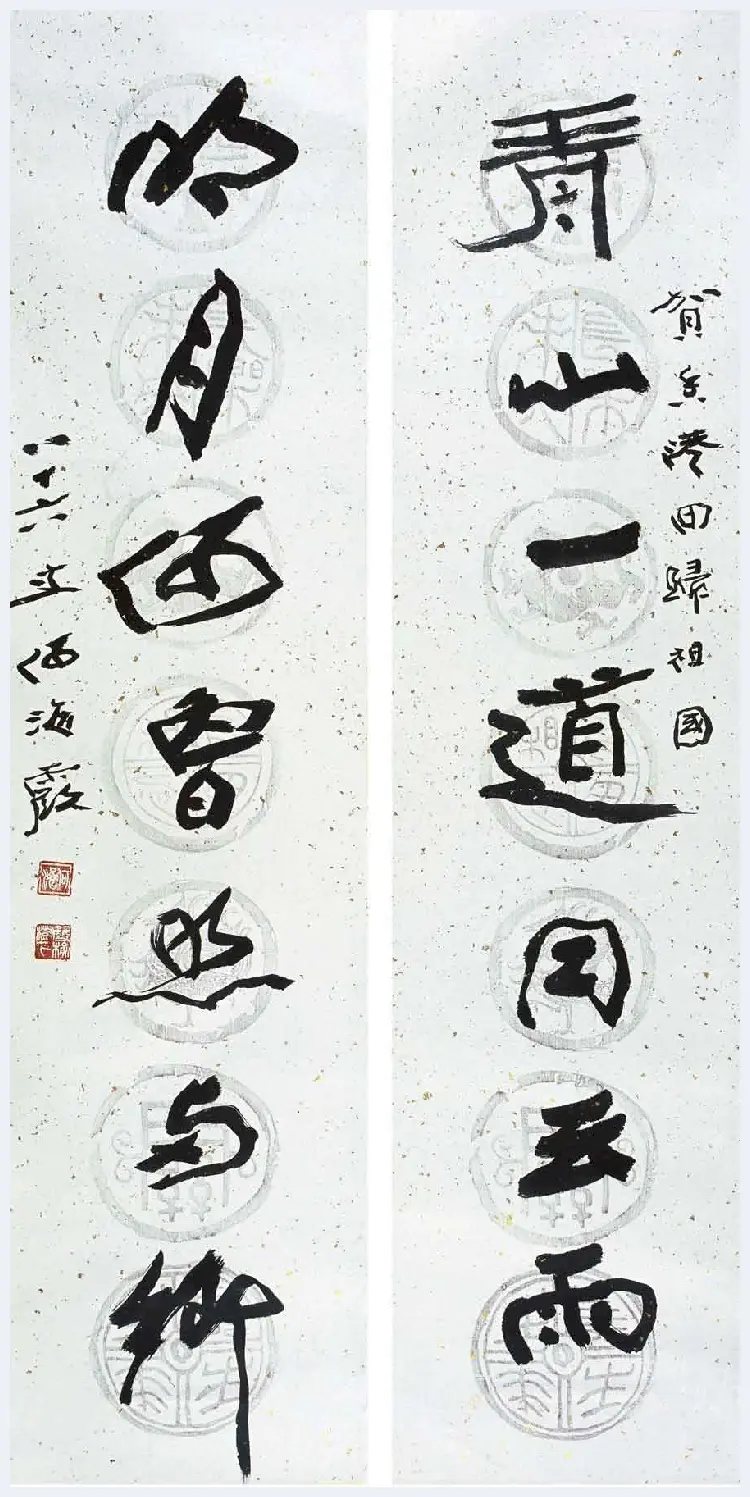 賀香港回歸祖國
青山一道同云雨
明月何曾照两鄉
八十六叟何海霞